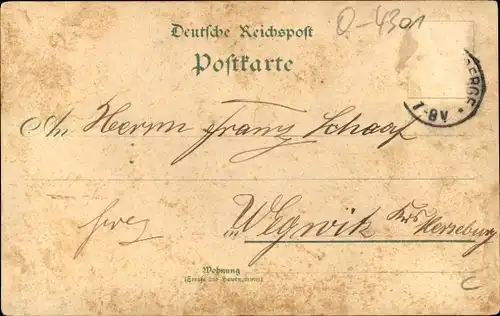 O-4301
Deutsche Reichspost
Postkarte
BERGE *
7-8V
An Herrn Franz Schaaf
in Wegwitz Krs Merseburg
Wohnung
(Straße und Hausnummer)
C